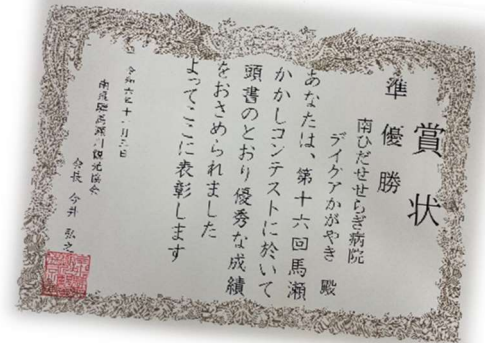 賞状
準優勝
南ひだせせらぎ病院
デイケアかがやき 殿
あなたは、第十六回馬瀬
かかしコンテストに於いて
頭書のとおり優秀な成績
をおさめられました
よってここに表彰します
令和六年十一月三日
南飛騨馬瀬川観光協会
会長 今井 弘之